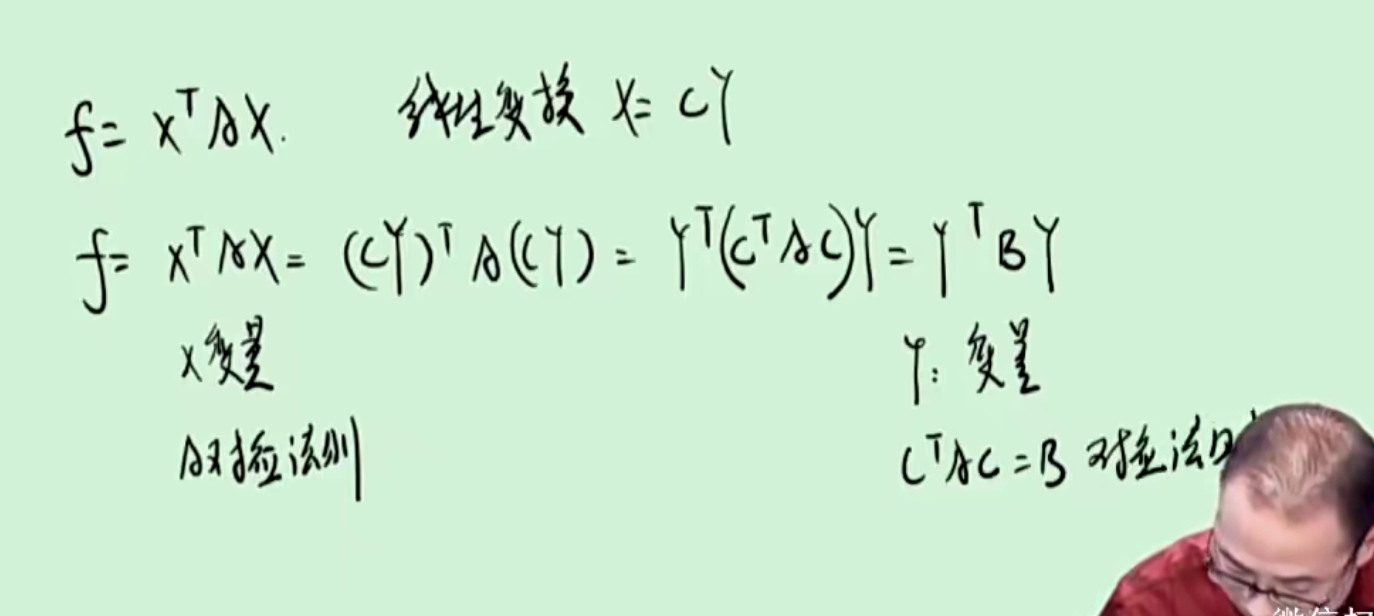 f= x^T A X. 线性变换 X= CY
f= x^T A X = (CY)^T A(CY) = Y^T(C^T A C)Y = Y^T B Y
X变量
Y: 变量
A对应法则
C^T A C = B 对应法则
微信扫